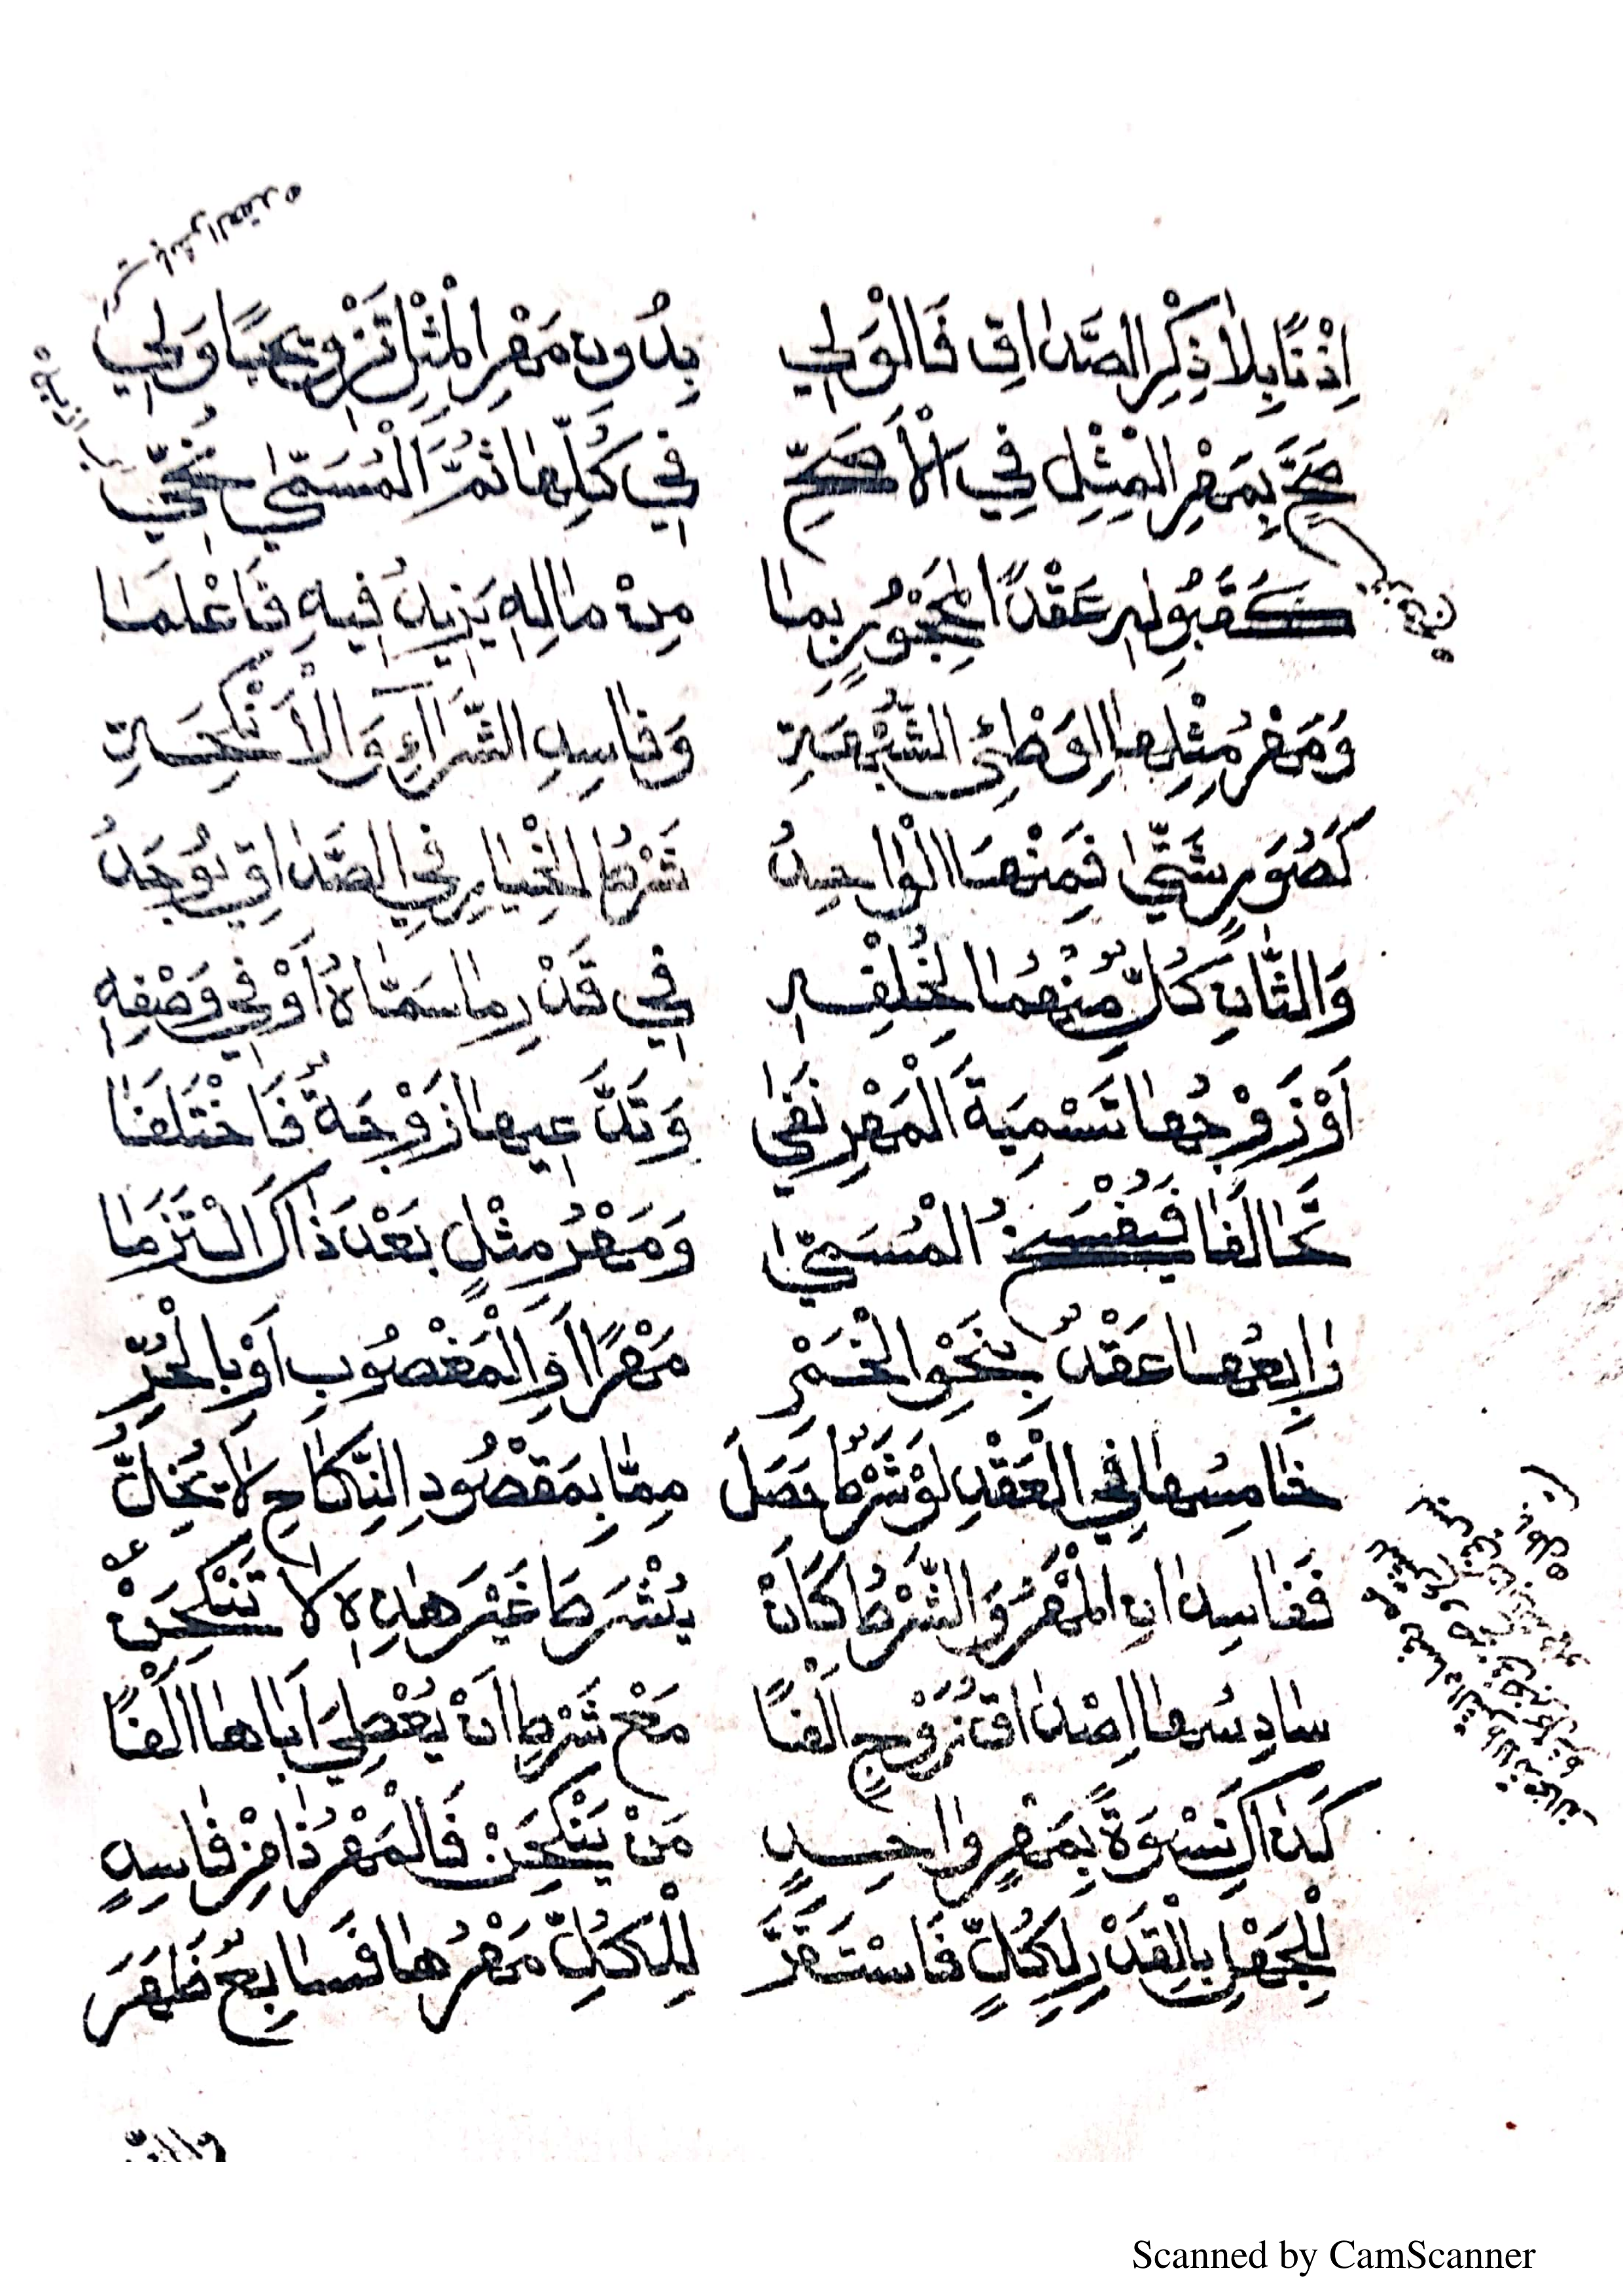 اِذْنًا بِلَا ذِكْرِ الصَّدَاقِ فَالْوَلِي بِدُونِ مَهْرِ الْمِثْلِ تَزْوِيجًا وَلِي
صَحَّ بِمَهْرِ الْمِثْلِ فِي الْأَصَحِّ فِي كُلِّهَا ثُمَّ الْمُسَمَّى
كَقَبُولِهِ عَقْدًا لِمَحْجُورٍ بِمَا مِنْ مَالِهِ يَزِيدُ فِيهِ فَاعْلَمَا
وَمَهْرُ مِثْلِهَا لِوَطْئِ الشُّبْهَةِ وَفَاسِدِ الشِّرَاءِ وَالْأَنْكِحَةِ
كَصُوَرٍ شَتَّى فَمِنْهَا الْوَاحِدُ شَرْطُ الْخِيَارِ فِي الصَّدَاقِ يُوجَدُ
وَالثَّانِ كُلٌّ مِنْهُمَا لِخُلْفِهِ فِي قَدْرِ مَا سَمَّاهُ أَوْ فِي وَصْفِهِ
اَوْ زَوْجُهَا تَسْمِيَةَ الْمَهْرِ نَفَى وَتَدَّعِيهَا زَوْجَةٌ فَاخْتَلَفَا
تَحَالَفَا فَيُفْسَخُ الْمُسَمَّى وَمَهْرُ مِثْلٍ بَعْدَ ذَاكَ الْتَزَمَا
رَابِعُهَا عَقْدٌ بِنَحْوِ الْخَمْرِ مَهْرًا اَوِ الْمَغْصُوبِ اَوْ بِالْحُرِّ
خَامِسُهَا فِي الْعَقْدِ لَوْ شَرْطٌ حَصَلَ مِمَّا بِمَقْصُودِ النِّكَاحِ لَا يُخِلُّ
فَفَاسِدَانِ الْمَهْرُ وَالشَّرْطُ كَأَنْ يُشْرَطَ غَيْرَ هٰذِهِ لَا تَنْكِحَنْ
سَادِسُهَا اِصْدَاقُ زَوْجٍ اَلْفًا مَعْ شَرْطِ اَنْ يُعْطِيَ اَبَاهَا اَلْفًا
كَذَاكَ نِسْوَةً بِمَهْرٍ وَاحِدٍ مَنْ يَنْكِحَنْ فَالْمَهْرُ ذَا مِنْ فَاسِدٍ
لِلْجَهْلِ بِالْقَدْرِ لِكُلٍّ فَاسْتَقَرَّ لِلْكُلِّ مَهْرُهَا فَسَابِعٌ ظَهَرَ
Scanned by CamScanner